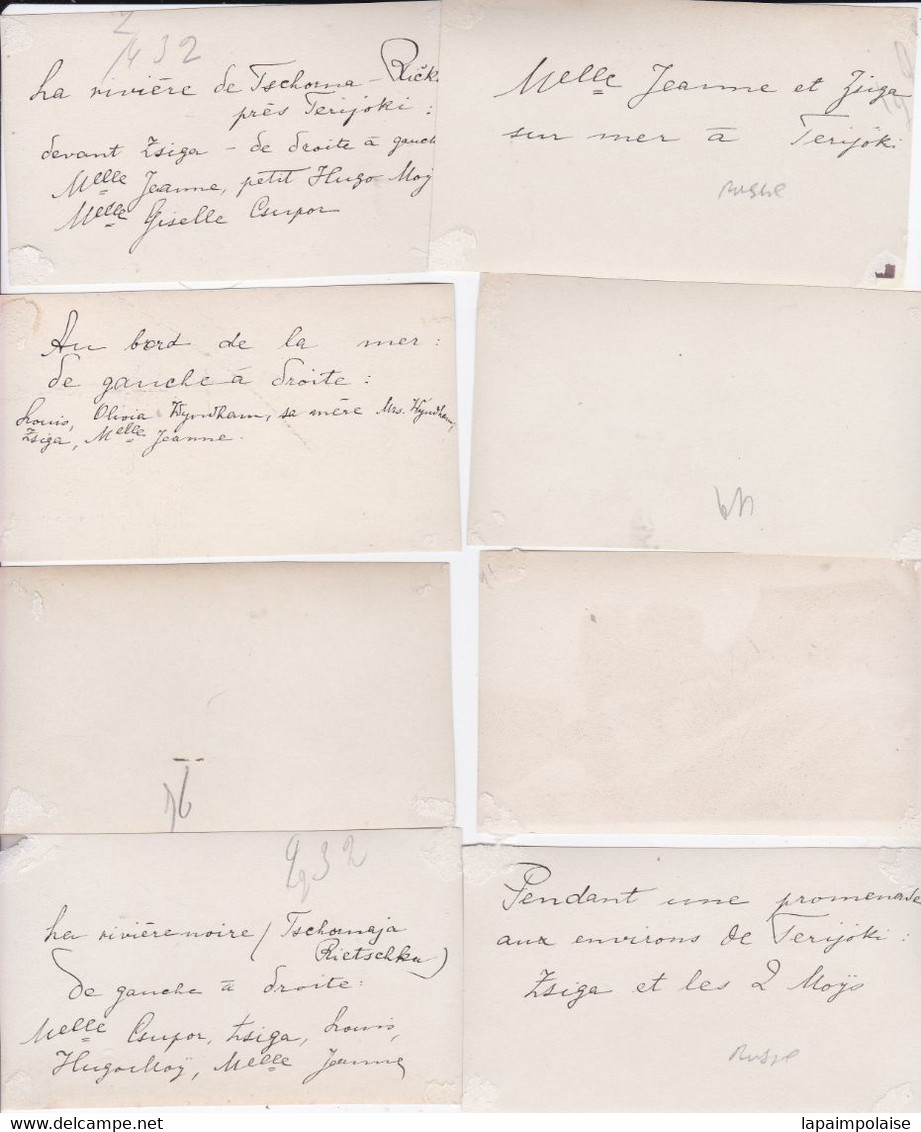 432
La rivière de Tschorna-Ričk
près Terijoki :
devant Zsiga - de droite à gauch
Melle Jeanne, petit Hugo Moÿ
Melle Giselle Csupor
Melle Jeanne et Zsiga
sur mer à Terijöki
Russie
Au bord de la mer :
de gauche à droite :
Louis, Olivia Wyndham, sa mère Mrs. Wyndham,
Zsiga, Melle Jeanne.
La rivière noire (Tschornaja
Rietschka)
de gauche à droite :
Melle Csupor, Zsiga, Louis,
Hugo Moÿ, Melle Jeanne
Pendant une promenade
aux environs de Terijöki :
Zsiga et les 2 Moÿs
Russe
delcampe.net
lapaimpolaise